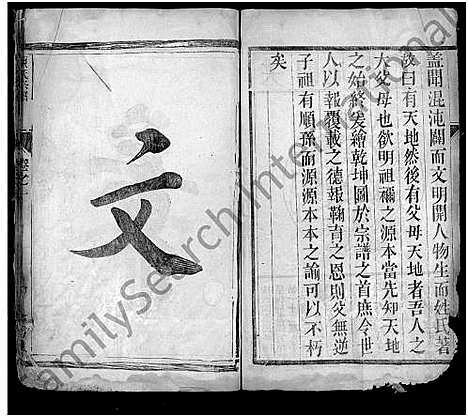 蓋聞混沌闢而文明開人物生而姓氏著
說曰有天地然後有父母天地者吾人之
大父母也欲明祖禰之源本當先知天地
之始終爰繪乾坤圖於宗譜之首庶令世
人以報覆載之德報鞠育之恩則父無逆
子祖有順孫而源源本本之諭可以不朽
矣
文
FamilySearch International